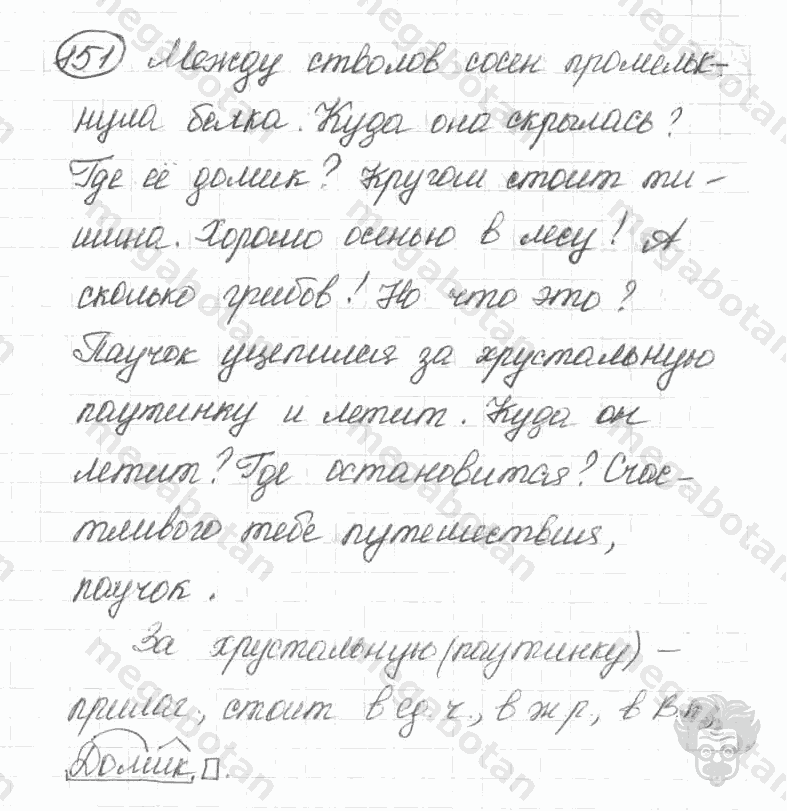 151 Между стволов сосен промельк-
нула белка. Куда она скрылась?
Где её домик? Кругом стоит ти-
шина. Хорошо осенью в лесу! А
сколько грибов! Но что это?
Паучок уцепился за хрустальную
паутинку и летит. Куда он
летит? Где остановится? Счас-
тливого тебе путешествия,
паучок.
За хрустальную (паутинку) -
прилаг., стоит в ед. ч., в ж р., в В.п.
Домик.
megabotan